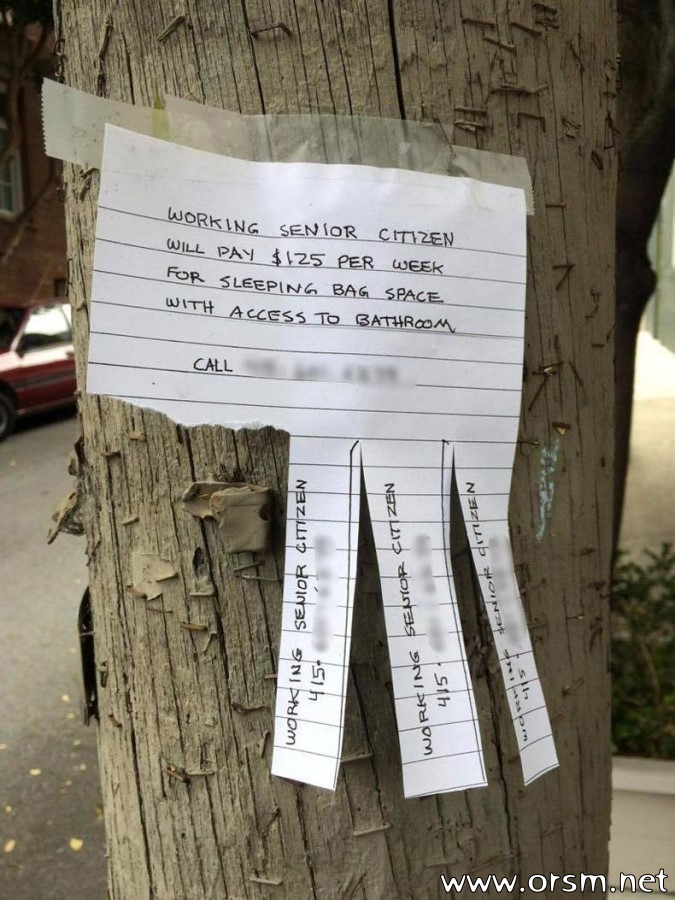 WORKING SENIOR CITIZEN
WILL PAY $125 PER WEEK
FOR SLEEPING BAG SPACE
WITH ACCESS TO BATHROOM
CALL
WORKING SENIOR CITIZEN
415.
WORKING SENIOR CITIZEN
415.
WORKING SENIOR CITIZEN
415
www.orsm.net